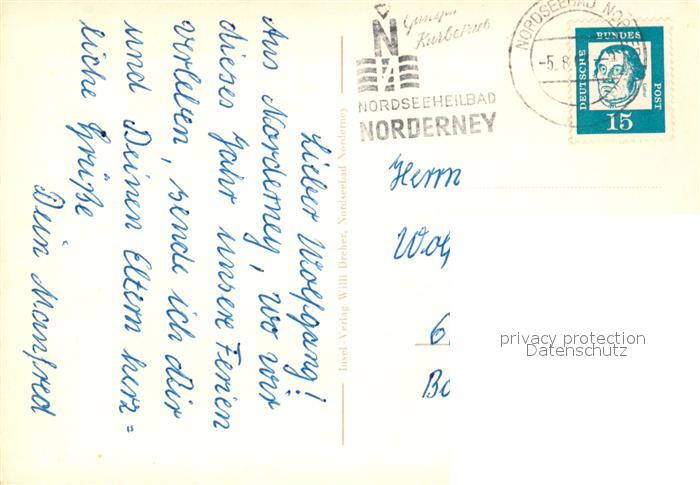 Lieber Wolfgang!
Aus Norderney, wo wir
dieses Jahr unsere Ferien
verleben, sende ich dir
und Deinen Eltern herz=
liche Grüße
Dein Manfred
Insel-Verlag Willi Dreher, Nordseebad Norderney
Kurbetrieb
N
NORDSEEHEILBAD
NORDERNEY
NORDSEEBAD
-5.8
DEUTSCHE BUNDES POST
15
Herrn
Wolf
6
Bo
privacy protection
Datenschutz